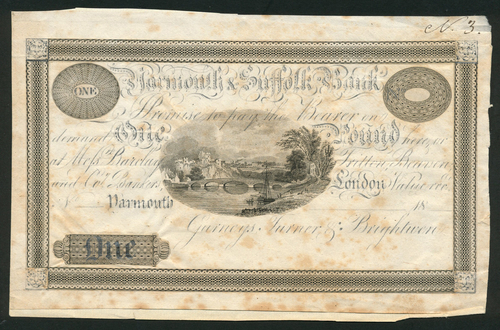 N. 3.
Yarmouth & Suffolk Bank
ONE
I Promise to pay the Bearer on
demand One Pound here, or
at Mess.rs Barclay Tritton Bevan
and Co. Bankers, London Value rec
N Yarmouth 18
Gurneys Turner & Brightwen
One